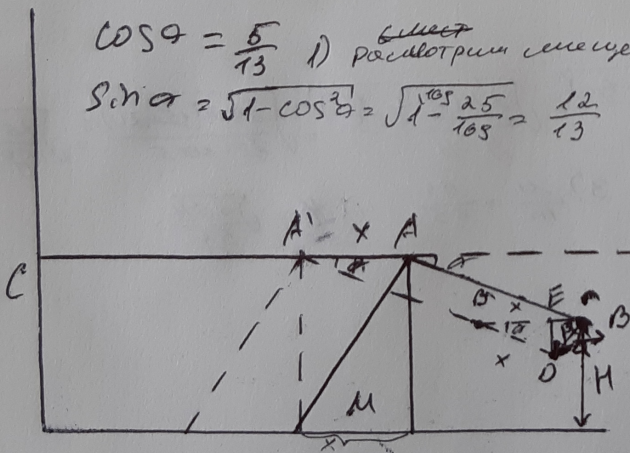 cos α = 5/13 1) расмотрим смеще
Sin α = √(1-cos²α) = √(1 - 25/169) = 12/13
A' x A
C
α
x
E
B
x
D
H
M
x